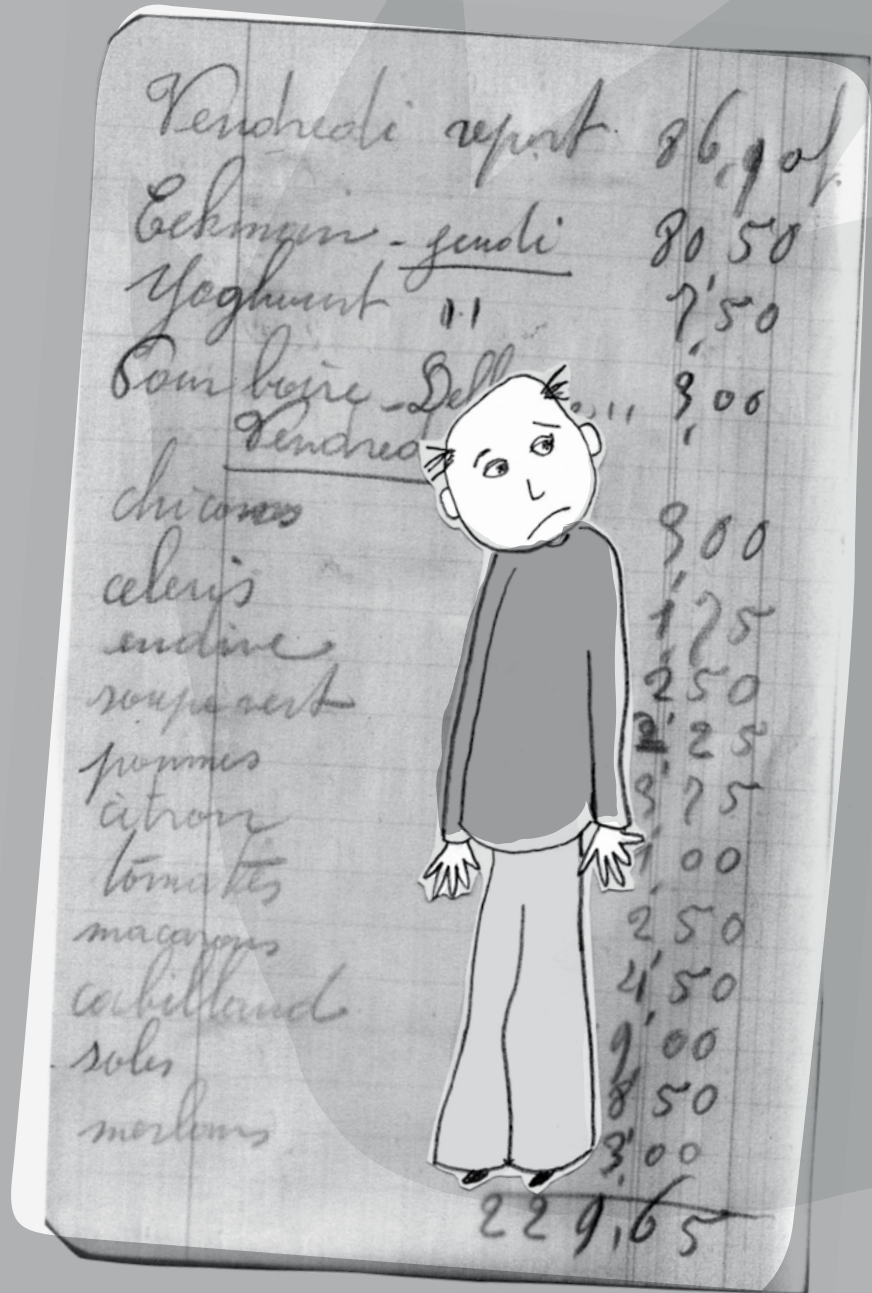 Vendredi report 86,90f
Eekman - jeudi 80,50
Yoghourt " 7,50
Pour boire - Dell " 3,00
Vendred
chicons 3,00
celeris 1,75
endive 2,50
soupe vert 2,25
pommes 3,75
citron 1,00
tomates 2,50
macarons 4,50
cabillaud 9,00
soles 8,50
merlans 3,00
229,65